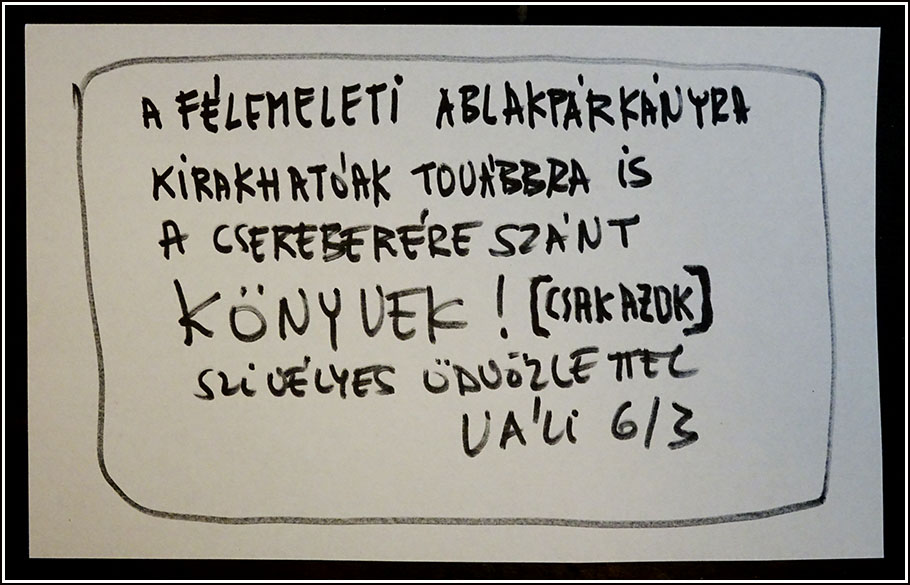 A FÉLEMELETI ABLAKPÁRKÁNYRA
KIRAKHATÓAK TOVÁBBRA IS
A CSEREBERÉRE SZÁNT
KÖNYVEK! [CSAK AZOK]
SZIVÉLYES ÜDVÖZLETTEL
VÁLI 6/3